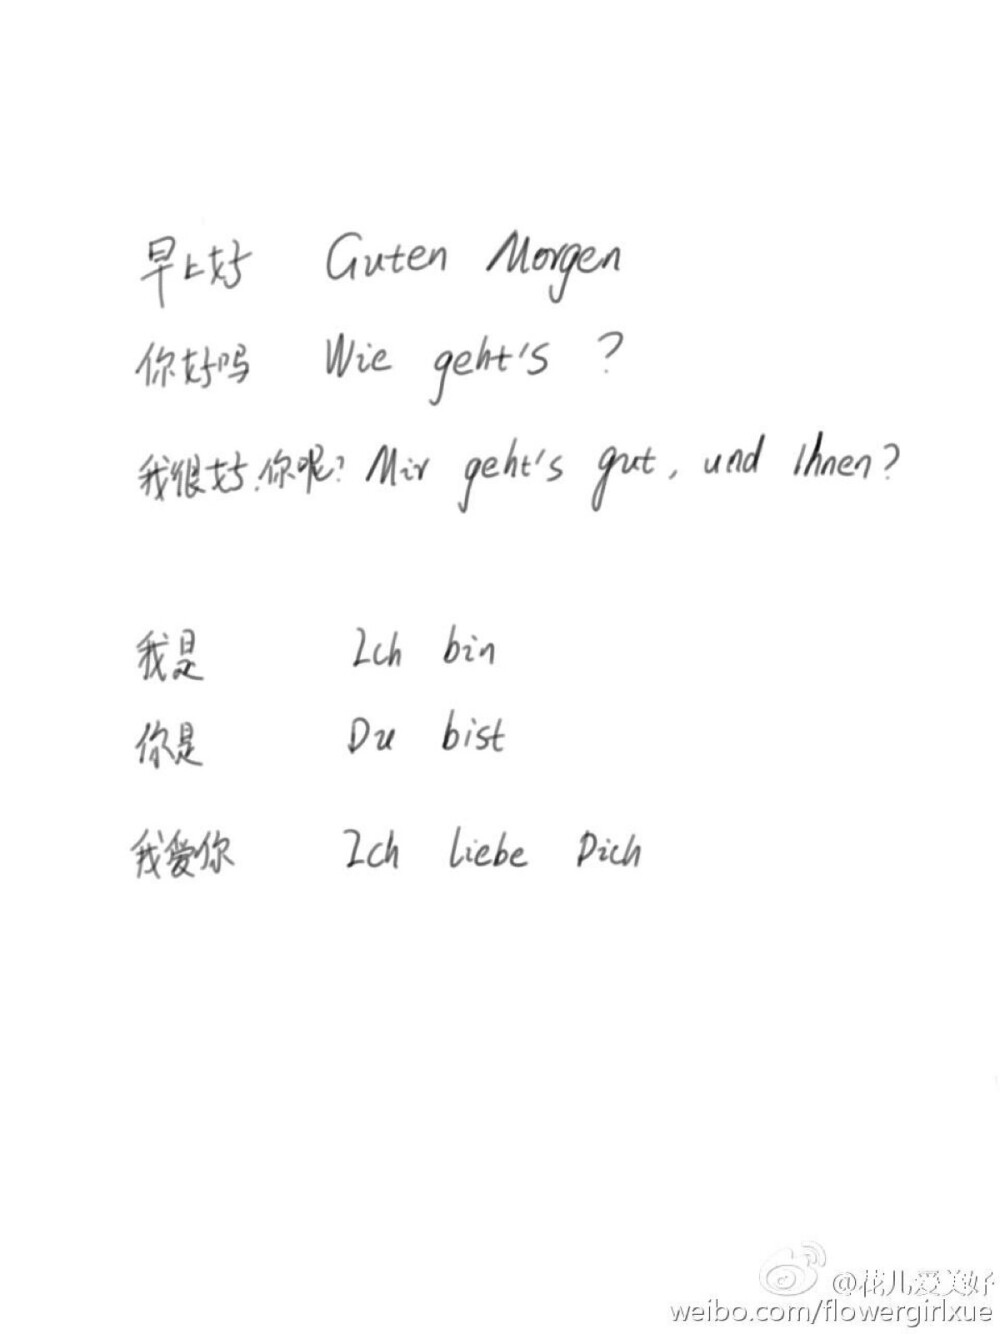 早上好 Guten Morgen
你好吗 Wie geht's ?
我很好.你呢? Mir geht's gut, und Ihnen?
我是 Ich bin
你是 Du bist
我爱你 Ich liebe Dich
@花儿爱美好
weibo.com/flowergirlxue